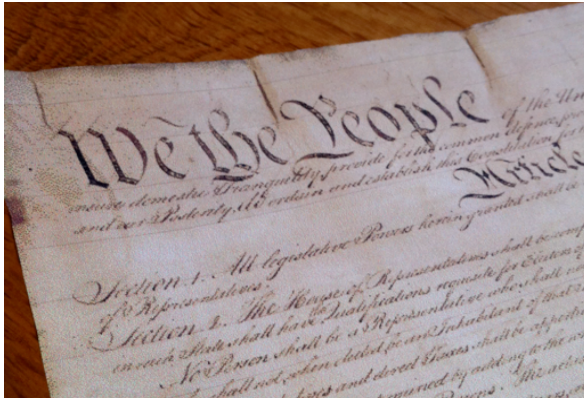 We the People of the Un
insure domestic Tranquility, provide for the common defence, pro
and our Posterity, do ordain and establish this Constitution for
Article
Section. 1. All legislative Powers herein granted shall be
of Representatives.
Section. 2. The House of Representatives shall be comp
in each State shall have the Qualifications requisite for Electors of
No Person shall be a Representative who shall n
shall not, when elected, be an Inhabitant of that
and direct Taxes shall be apporti
by adding to the w
The actu